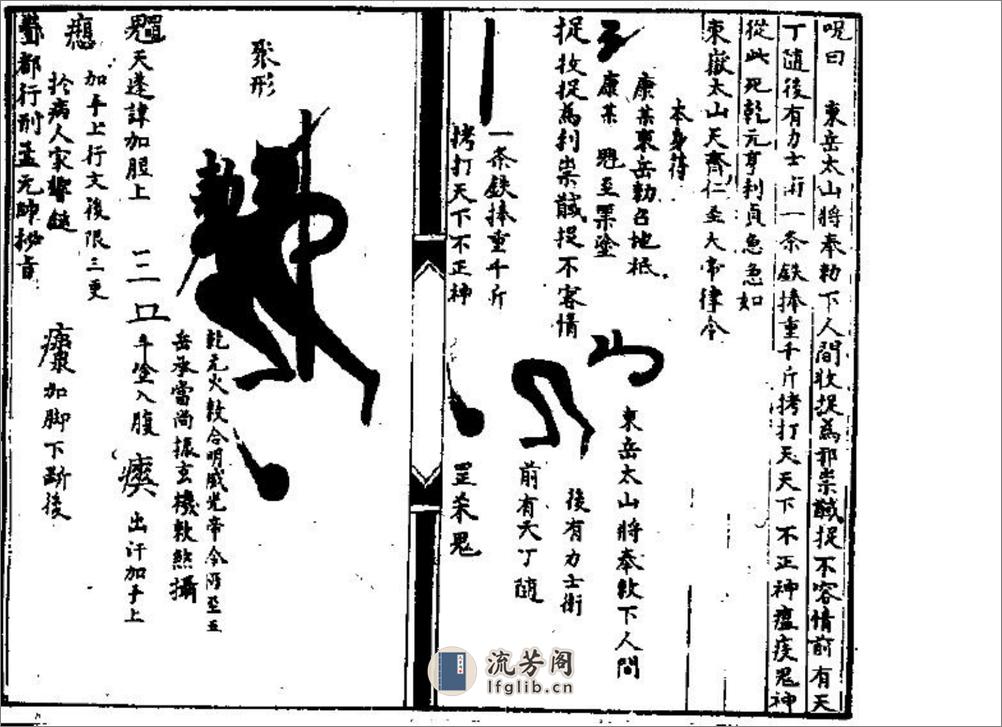 呪曰　東岳太山將奉勅下人間收捉為邪祟馘捉不容情前有天
丁隨後有力士斬一条鉄捧重千斤拷打天天下不正神瘟疫鬼神
從此死乾元亨利貞急急如
東嶽太山天齊仁圣大帝律令
本身符
康某東岳勅召地祇
康某
捉收捉為利祟馘捉不容情
一条鉄捧重千斤
拷打天下不正神
東岳太山將奉勅下人間
後有力士衛
前有天丁隨
罡杀鬼
聚形
乾元火
合明威光帝令
至五
岳承當尚振玄機
攝
天蓬諱加腿上
三
塗入腹
出汗加手上
加手上行文後限三更
於病人家
加脚下断後
都行刑孟元帥
流芳阁
lfglib.cn